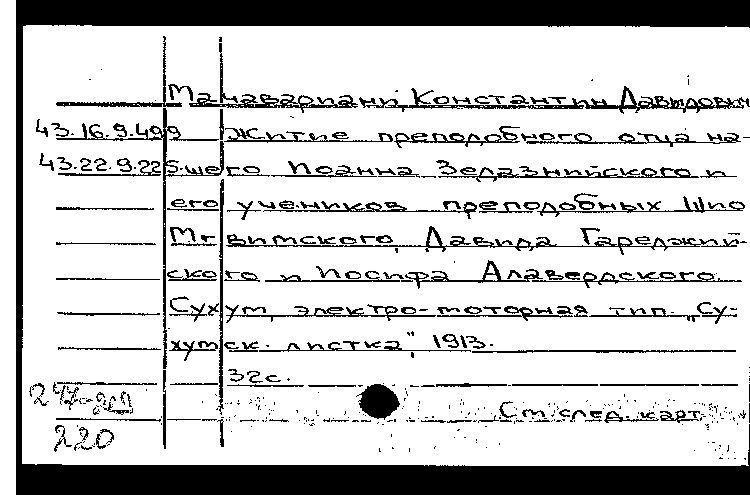 Мачавариани, Константин Давыдович
43.16.9.499 Житие преподобного отца на-
43.22.9.225 шего Иоанна Зедазнийского и
его учеников преподобных Шио
Мгвимского, Давида Гареджий-
ского и Иосифа Алавердского.
Сухум, электро-моторная тип. „Су-
хумск. листка", 1913.
32с.
См след. карт.
220